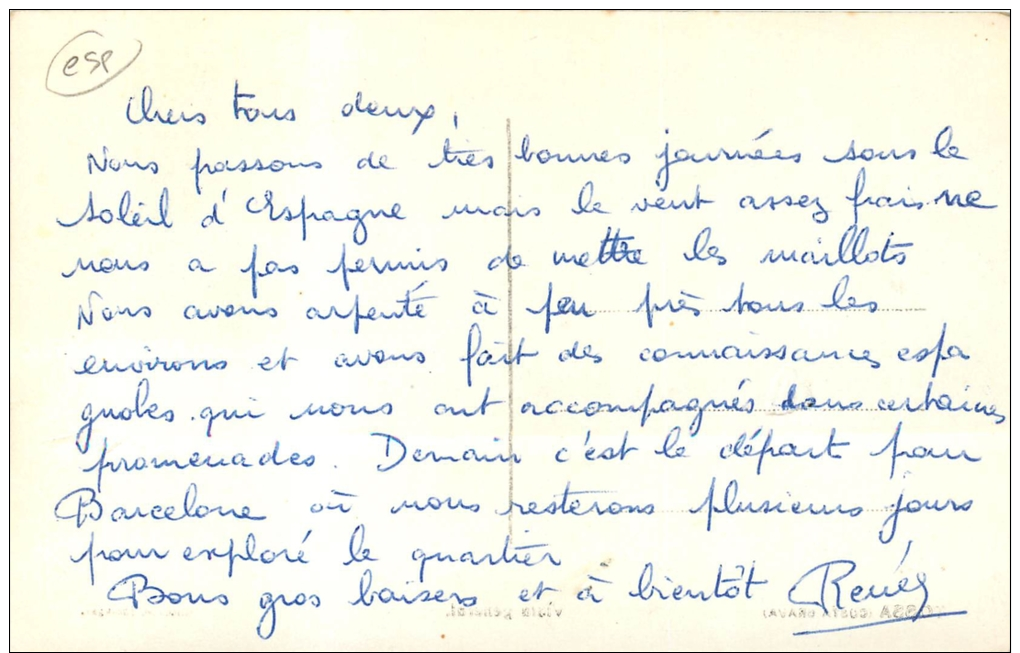 esp
Chers tous deux,
Nous passons de très bonnes journées sous le
soleil d'Espagne mais le vent assez frais ne
nous a pas permis de mettre les maillots
Nous avons arpenté à peu près tous les
environs et avons fait des connaissances espa
gnoles qui nous ont accompagnés dans certaines
promenades. Demain c'est le départ pour
Barcelone où nous resterons plusieurs jours
pour exploré le quartier
Bons gros baisers et à bientôt Renée
Vista general.
(COSTA BRAVA)